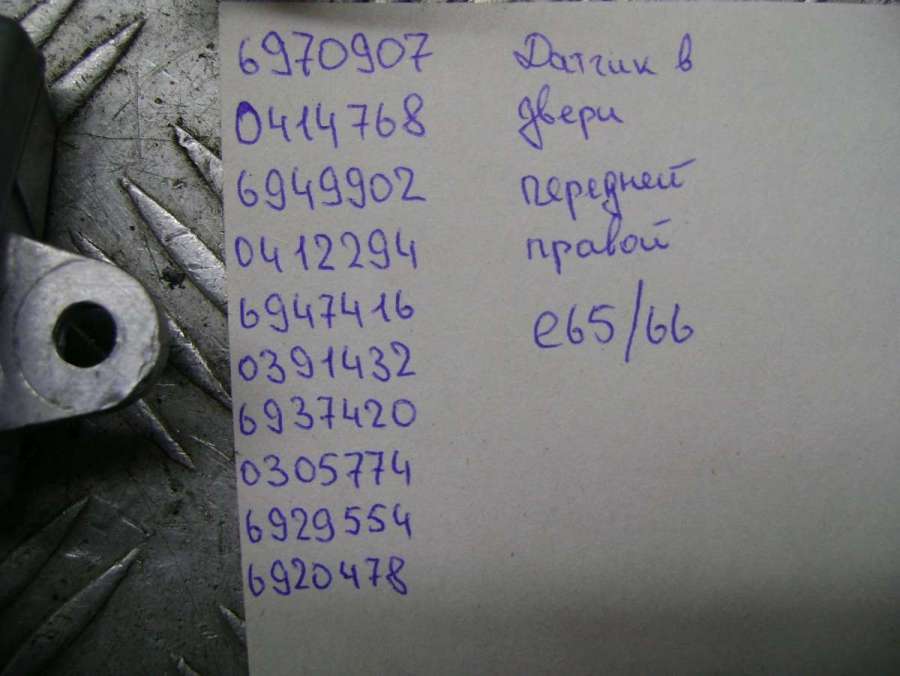 6970907 Датчик в
0414768 двери
6949902 передней
0412294 правой
6947416 e65/66
0391432
6937420
0305774
6929554
6920478